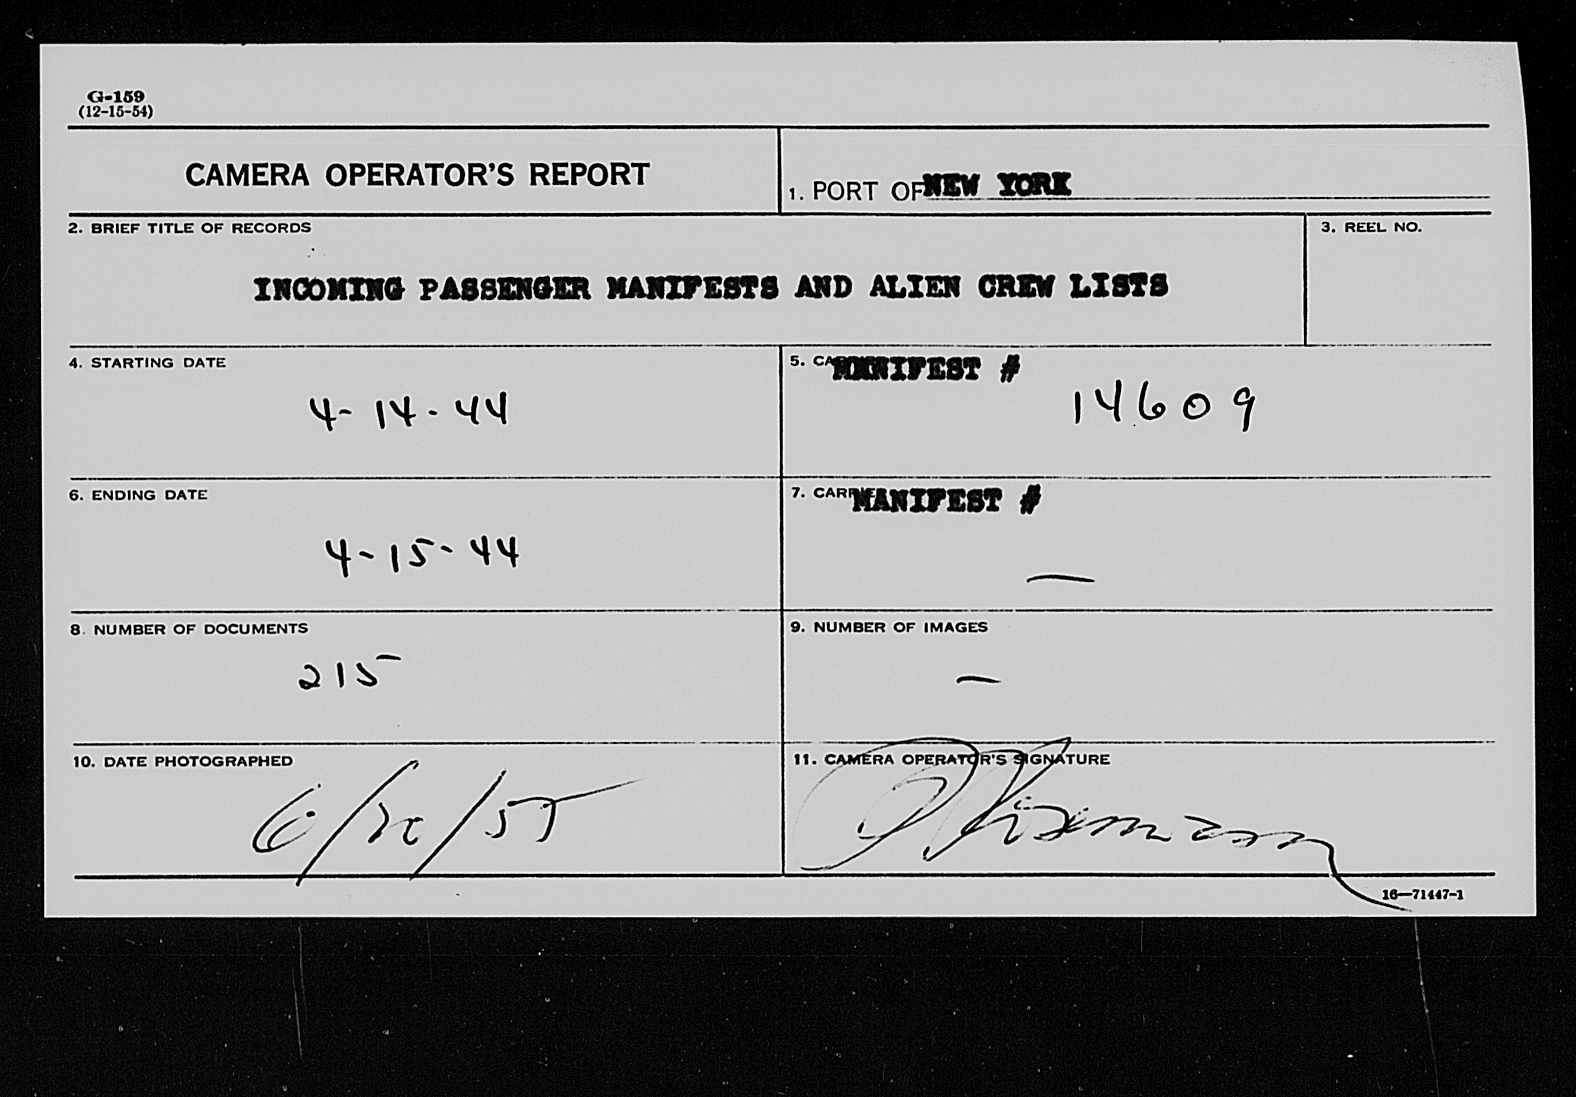 G-159
(12-15-54)
CAMERA OPERATOR'S REPORT
1. PORT OF NEW YORK
2. BRIEF TITLE OF RECORDS
3. REEL NO.
INCOMING PASSENGER MANIFESTS AND ALIEN CREW LISTS
4. STARTING DATE
4-14-44
5. MANIFEST #
14609
6. ENDING DATE
4-15-44
7. MANIFEST #
—
8. NUMBER OF DOCUMENTS
215
9. NUMBER OF IMAGES
—
10. DATE PHOTOGRAPHED
11. CAMERA OPERATOR'S SIGNATURE
16—71447-1